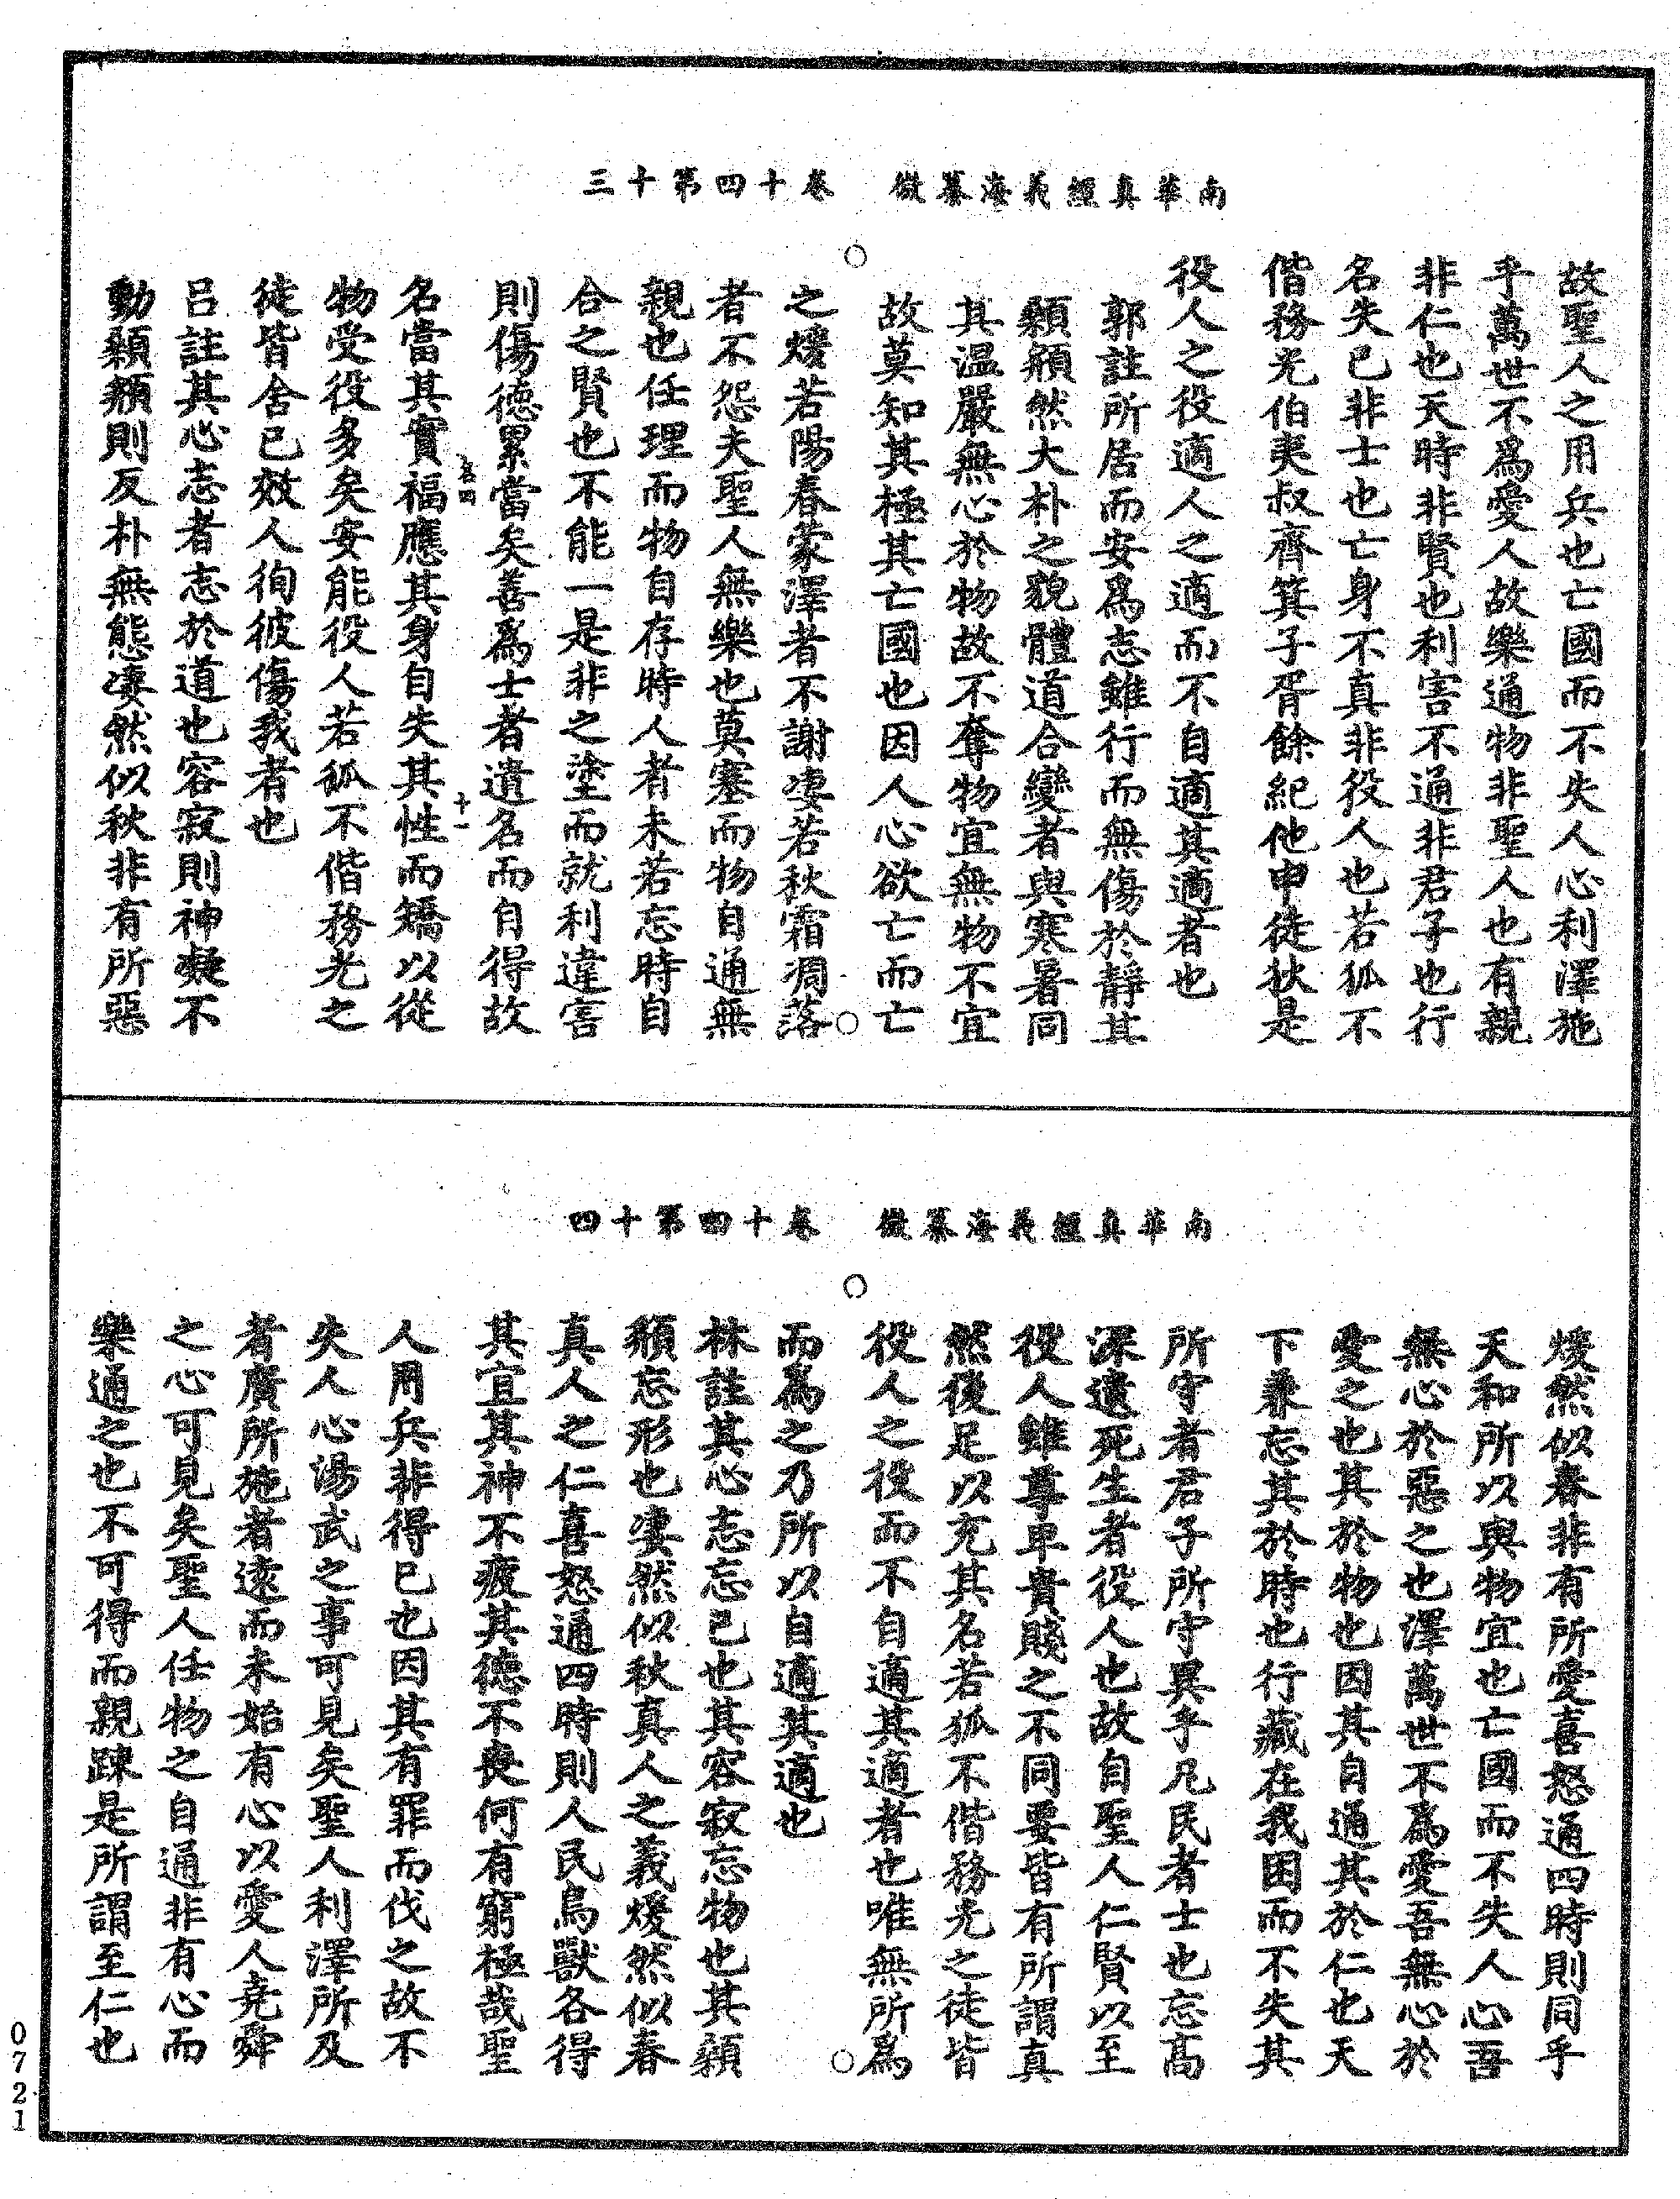 南華真經義海纂微　卷十四第十三
故聖人之用兵也亡國而不失人心利澤施
乎萬世不爲愛人故樂通物非聖人也有親
非仁也天時非賢也利害不通非君子也行
名失已非士也亡身不真非役人也若狐不
偕務光伯夷叔齊箕子胥餘紀他申徒狄是
役人之役適人之適而不自適其適者也
郭註所居而安爲志雖行而無傷於靜其
顙頯然大朴之貌體道合變者與寒暑同
其温嚴無心於物故不奪物宜無物不宜
故莫知其極其亡國也因人心欲亡而亡
之煖若陽春蒙澤者不謝凄若秋霜凋落
者不怨夫聖人無樂也莫塞而物自通無
親也任理而物自存時人者未若忘時自
合之賢也不能一是非之塗而就利違害
則傷德累當矣善爲士者遺名而自得故
名當其實福應其身自失其性而矯以從
物受役多矣安能役人若狐不偕務光之
徒皆舍已效人徇彼傷我者也
呂註其心志者志於道也容寂則神凝不
動顙頯則反朴無態凄然似秋非有所惡
十一
南華真經義海纂微　卷十四第十四
煖然似春非有所愛喜怒通四時則同乎
天和所以與物宜也亡國而不失人心吾
無心於惡之也澤萬世不爲愛吾無心於
愛之也其於物也因其自通其於仁也天
下兼忘其於時也行藏在我困而不失其
所守者君子所守異乎凡民者士也忘高
深遺死生者役人也故自聖人仁賢以至
役人雖尊卑貴賤之不同要皆有所謂真
然後足以充其名若狐不偕務光之徒皆
役人之役而不自適其適者也唯無所爲
而爲之乃所以自適其適也
林註其心志忘已也其容寂忘物也其顙
頯忘形也凄然似秋真人之義煖然似春
真人之仁喜怒通四時則人民鳥獸各得
其宜其神不疲其德不喪何有窮極哉聖
人用兵非得已也因其有罪而伐之故不
失人心湯武之事可見矣聖人利澤所及
者廣所施者遠而未始有心以愛人堯舜
之心可見矣聖人任物之自通非有心而
樂通之也不可得而親踈是所謂至仁也
0721